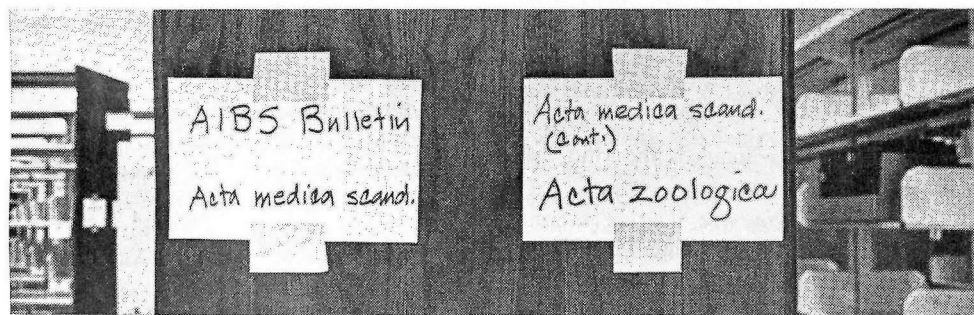 AIBS Bulletin
Acta medica scand.
Acta medica scand.
(cont.)
Acta zoologica